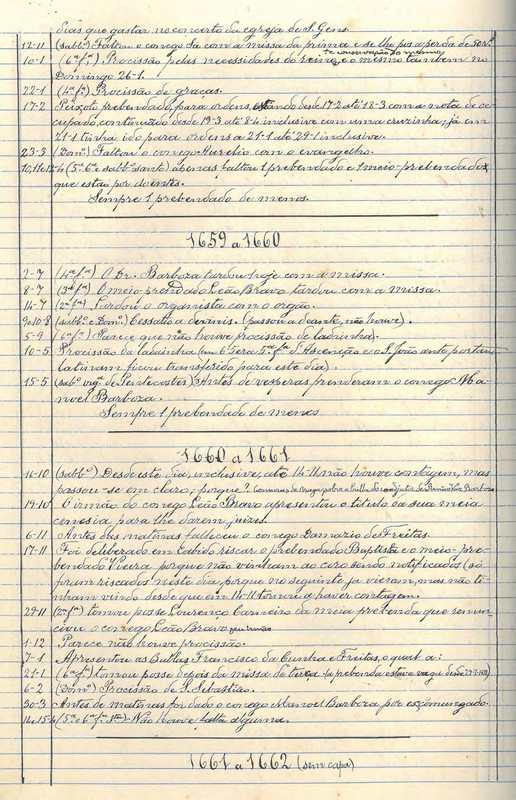 dias que gastar no concerto da egreja de S. Gens.
12-11 (sabbº) Faltou o conego Sá com a missa da prima e se lhe pos a perda de 50 rs.
10-1 (6ª fª) Procissão pelas necessidades do reino, e conservação do mesmo, e o mesmo tambem no
Domingo 26-1.
22-1 (4ª fª) Procissão de graças.
17-2 Peixoto prebendado, para ordens, estando desde 17-2 até 18-3 com a nota de oc-
cupado, continuado desde 19-3 até 8-4 inclusive com uma cruzinha; já em
21-1 tinha ido para ordens a 21-1 até 29-1 inclusive.
23-3 (Domº) Faltou o conego Aurelio com o evangelho.
10, 11 e 12-4 (5ª 6ª e sabbº santo) apenas faltou 1 prebendado e 1 meio-prebendado,
que estão por doentes.
Sempre 1 prebendado de menos.
1659 a 1660
2-7 (4ª fª) O Dr. Barboza tardou hoje com a missa.
8-7 (3ª fª) O meio-prendado Leão Bravo tardou com a missa.
14-7 (2ª fª) Tardou o organista com o orgão.
9 e 10-8 (sabbº e Domº) Cessatio a divinis. (passou a deante, não houve).
5-9 (6ª fª) Parece que não houve procissão de ladainha).
10-5 Procissão da ladainha (em 6 fera 5ª fª d'Ascenção e o S. João ante portam
latinam ficou transferido para este dia).
15-5 (sabº vigª de Pentecostes) Antes de vesperas prenderam o conego Ma-
noel Barboza.
Sempre 1 prebendado de menos
1660 a 1661
16-10 (sabbº) Desde este dia, inclusive, até 14-11 não houve contagem, mas
passou-se em claro; porque? Censuras de Braga, sobre a bulla do coadjutor de Barboza
19-10 O irmão do conego Leão Bravo apresentou o titulo da sua meia
conesia para lhe darem juizes.
6-11 Antes das matinas falleceu o conego Damazio de Freitas.
17-11 Foi deliberado em Cabido riscar o prebendado Baptista e o meio-pre-
bendado Vieira porque não vinham ao coro sendo notificados (só
foram riscados n'este dia, porque no seguinte já vieram, mas não ti-
nham vindo desde que em 14-11 tornou a haver contagem.
29-11 (2ª fª) tomou posse Lourenço Carneiro da meia prebenda que renun-
ciou o conego Leão Bravo seu irmão
1-12 Parece não houve procissão.
7-1 Apresentou as Bullas Francisco da Cunha e Freitas, o qual a:
21-1 (6ª fª) tomou posse depois da missa da terça (a prebenda estava vaga desde
6-2 (Domº) Procissão de S. Sebastião.
30-3 Antes de matinas foi dado o conego Manoel Barboza por excomungado.
14 e 15-4 (5ª e 6ª fª stas) Não houve falta alguma.
1661 a 1662 (sem capa)